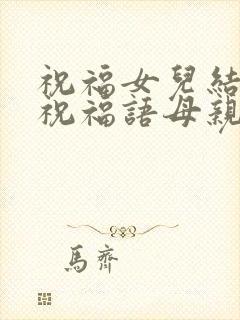 祝福女兒結
祝福語母親
馬齊